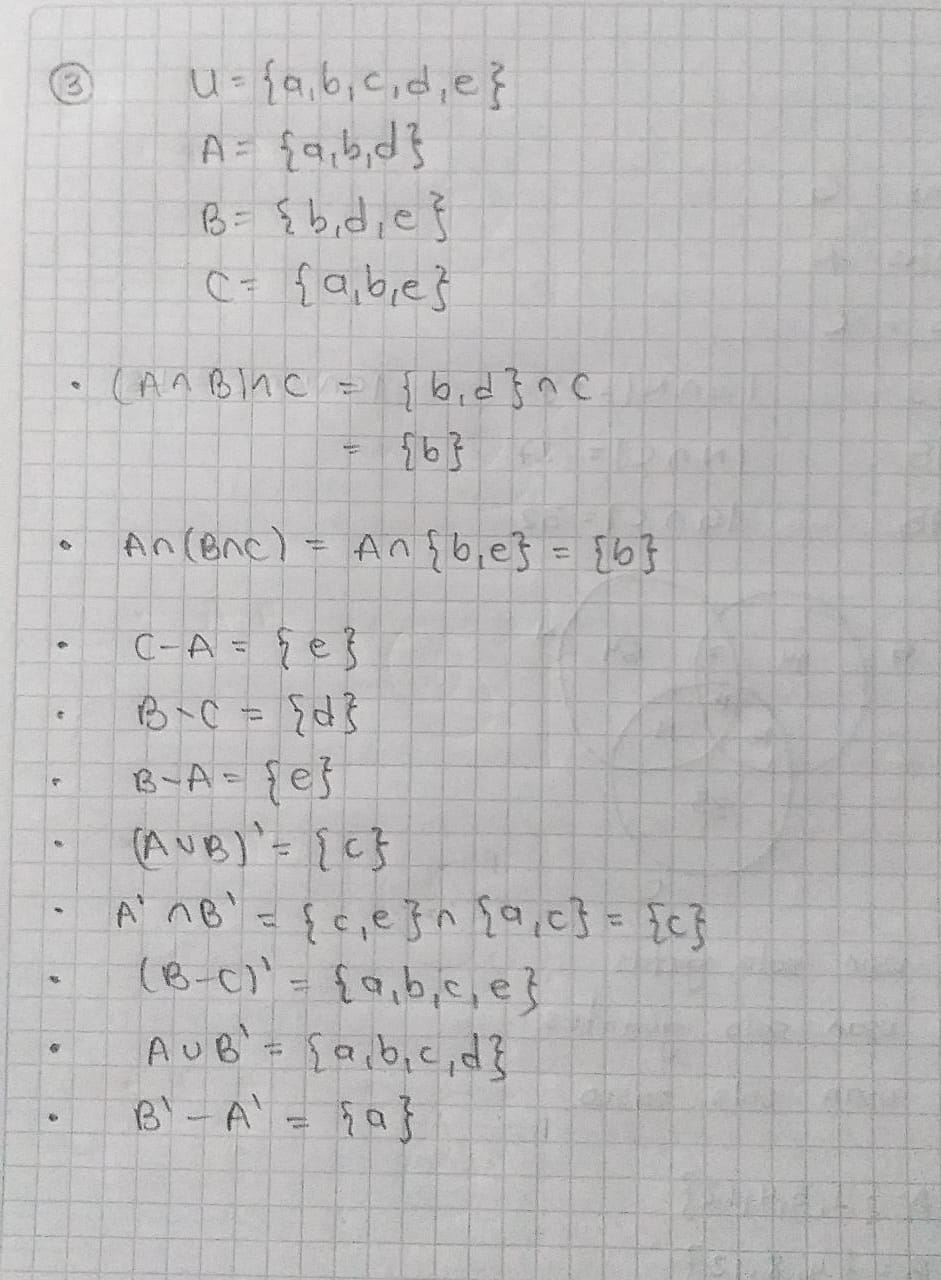 ③ U = {a,b,c,d,e}
A = {a,b,d}
B = {b,d,e}
C = {a,b,e}
• (A∩B)∩C = {b,d}∩C
= {b}
• A∩(B∩C) = A∩{b,e} = {b}
• C-A = {e}
• B-C = {d}
• B-A = {e}
• (A∪B)' = {c}
• A'∩B' = {c,e}∩{a,c} = {c}
• (B-C)' = {a,b,c,e}
• A∪B' = {a,b,c,d}
• B'-A' = {a}